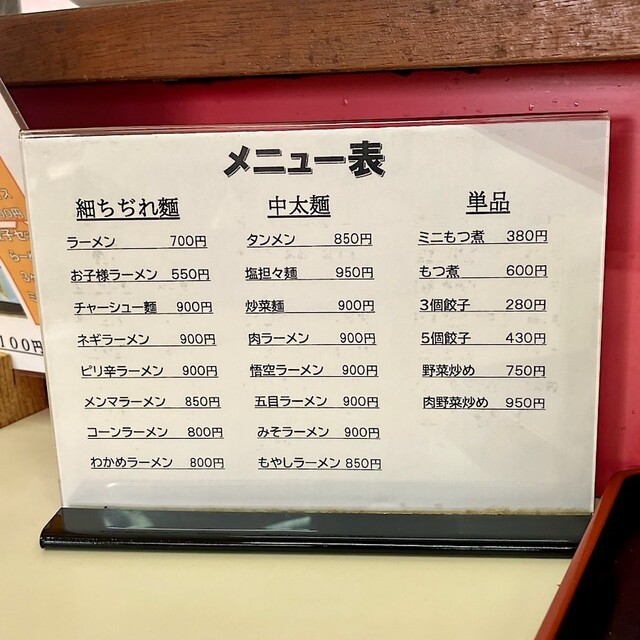 メニュー表
細ちぢれ麺
ラーメン 700円
お子様ラーメン 550円
チャーシュー麺 900円
ネギラーメン 900円
ピリ辛ラーメン 900円
メンマラーメン 850円
コーンラーメン 800円
わかめラーメン 800円
中太麺
タンメン 850円
塩担々麺 950円
炒菜麺 900円
肉ラーメン 900円
悟空ラーメン 900円
五目ラーメン 900円
みそラーメン 900円
もやしラーメン 850円
単品
ミニもつ煮 380円
もつ煮 600円
3個餃子 280円
5個餃子 430円
野菜炒め 750円
肉野菜炒め 950円
100円